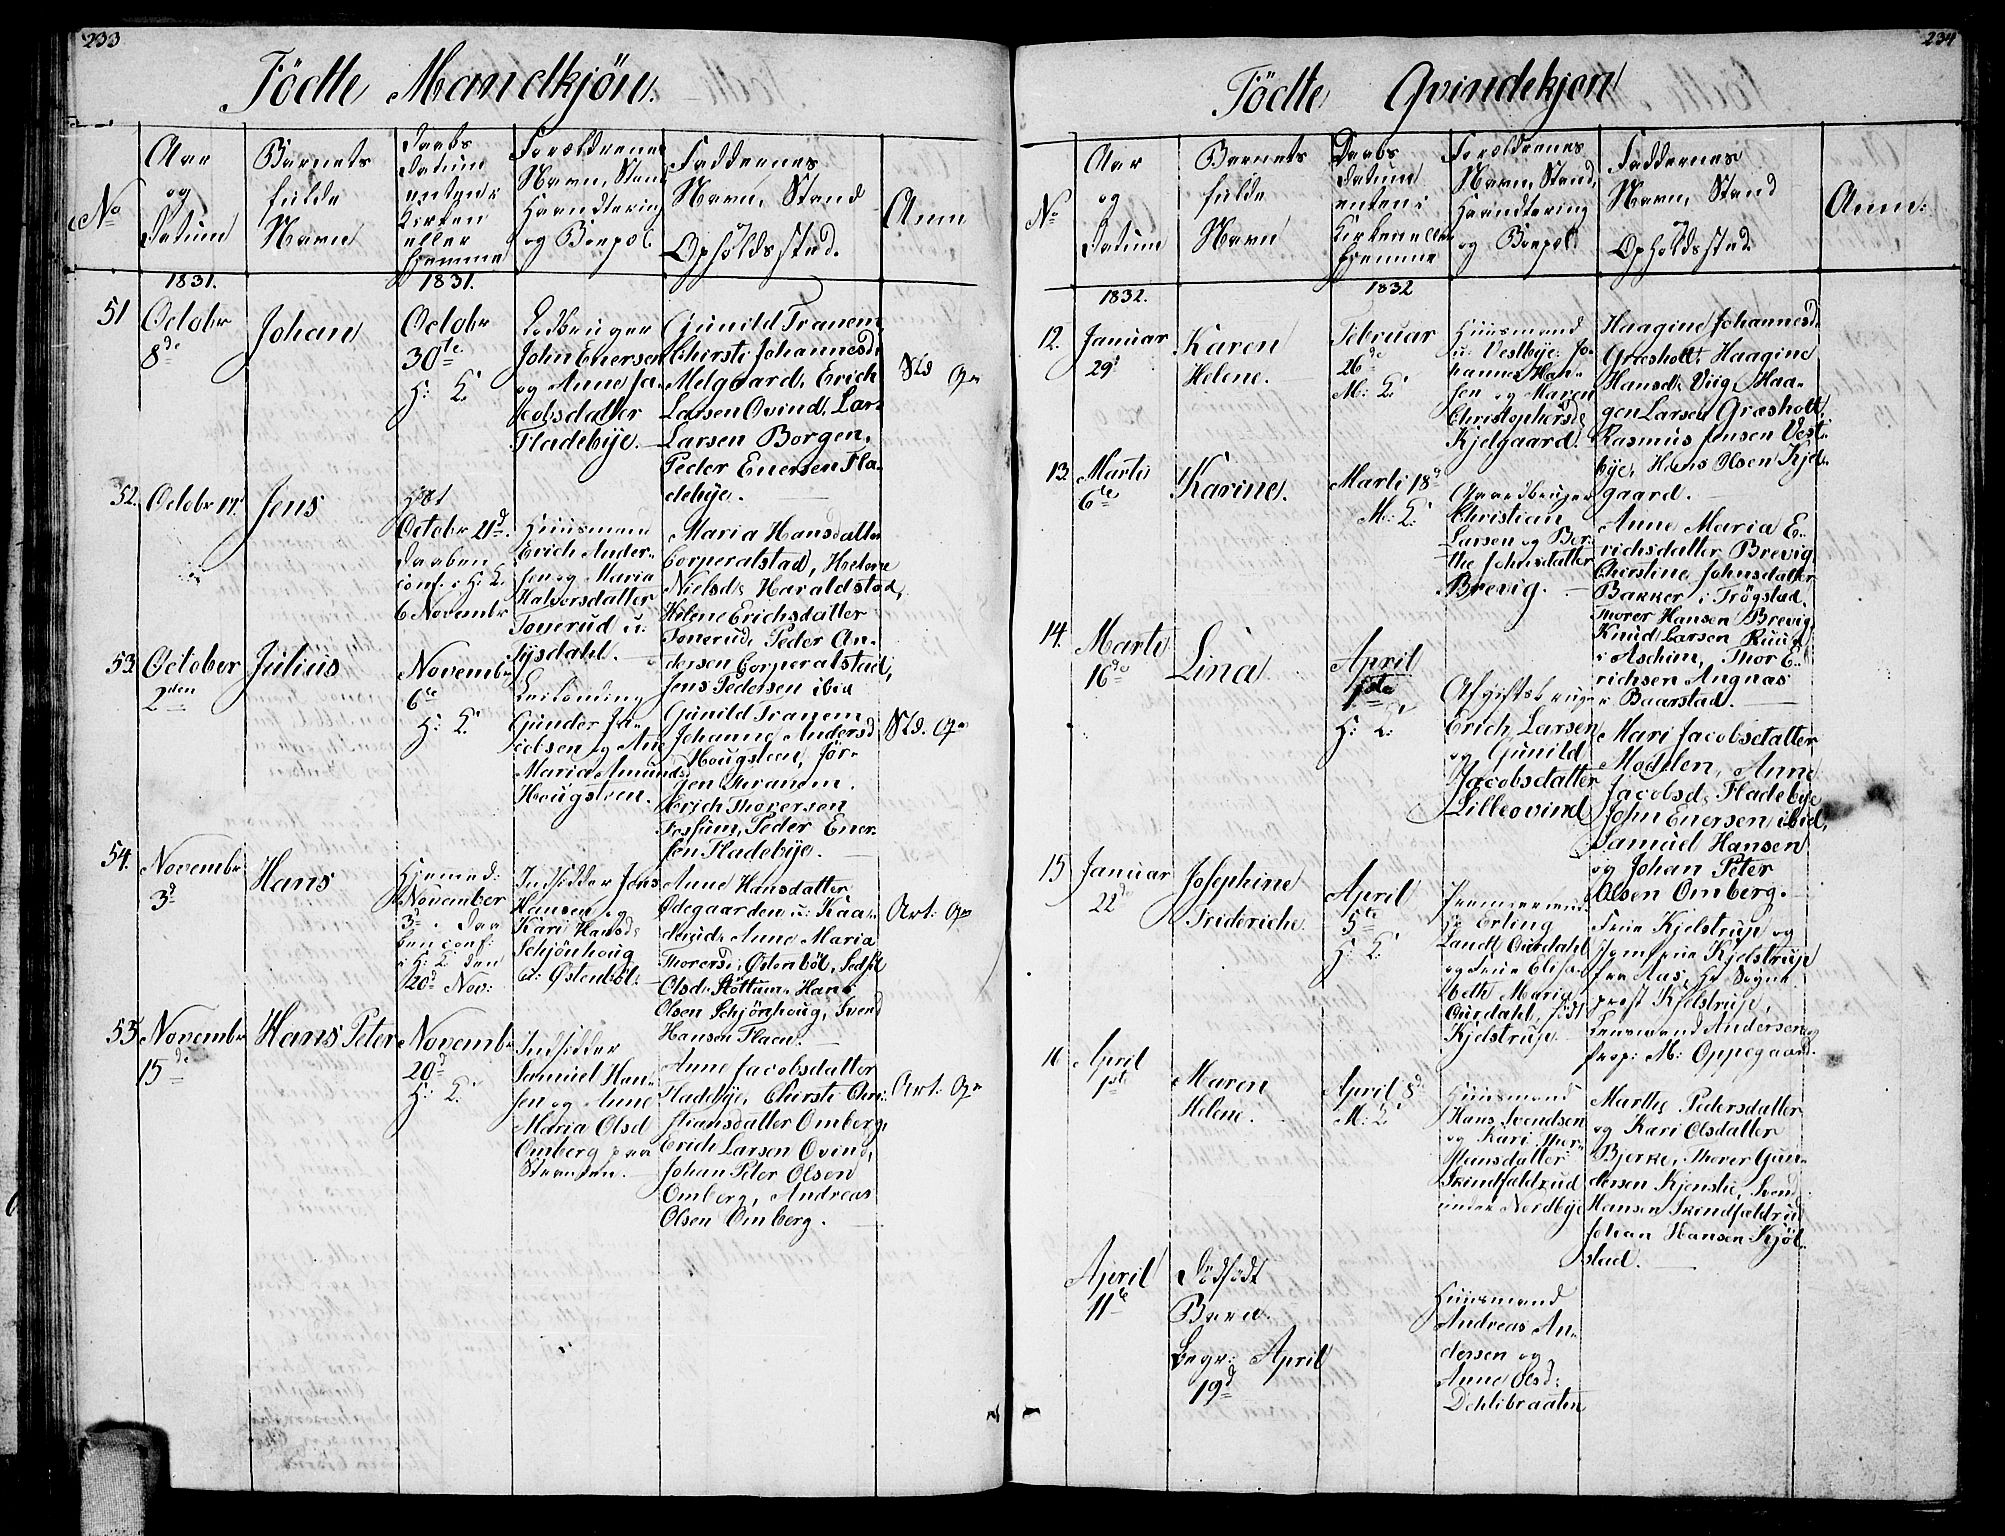 233
Födte Mandkjön.
No
Aar
og
Datum
Barnets
fulde
Navn
Daabs
Datum
enten i
Kirken
eller
Hjemme
Forældrenes
Navn, Stand
Haandtering
og Boepæl.
Faddernes
Navn, Stand
og
Opholdsstad.
Anm
1831.
1831.
51
Octobr
8de
Johan
Octobr
30te
H: K:
John Enersen
og Anne Ja-
cobsdatter
Fladebÿe.
Gunild Tranem,
Chirsti Johannesd:
Melgaard, Erich
Larsen Ovind, Lar-
Larsen Borgen,
Peder Enersen Fla-
debÿe.
52.
Octobr 17.
Jens
Octobr 21d.
Daaben
conf. i H: K.
6 Novembr
Huusmand
Erich Ander-
sen og Maria
Halvorsdatter
Tonerud u:
Sysdahl.
Maria Hansdatter
Corperalstad, Helene
Nielsd: Haraldstad,
Helene Erichsdatter
Tonerud, Peder An-
dersen Corperalstad,
Jens Pedersen ibid
53.
October
2den
Julius
Novembr
6te
H: K:
Leilænding
Gunder Ja-
cobsen og Ane
Maria Amunds:
Hougsteen.
Gunild Tranem
Johanne Andersd
Hougsteen, Jör-
gen Thranem.
Erich Thorersen
Fossum, Peder Ener-
sen Fladebÿe.
54.
Novembr
3d
Hans
Hjemmed:
November
3d. Daa
ben conf:
i H: K. den
20d Nov:
Indsidder Jens
Hansen og
Kari Hansd:
Schjönhoug
u: Østenböl.
Anne Hansdatter
Ødegaarden u: Kaa-
derud, Anne Maria
Thorersd: Østenböl, Sedsil
Olsd: Slottum, Hans
Olsen Schjönhoug, Svend
Hansen Flaen.
55.
Novembr
15de
Hans Peter
Novembr
20d
H: K:
Indsidder
Samuel Han-
sen og Anne
Maria Olsd
Omberg paa
Stranden.
Anne Jacobsdatter
Fladebÿe, Chirsti Chri-
stiansdatter Omberg,
Erich Larsen Ovind,
Johan Peter Olsen
Omberg, Andreas
Olsen Omberg.
234
Födte Qvindekjön
No
Aar
og
Datum
Barnets
fulde
Navn
Daabs
Datum
enten i
Kirken eller
Hjemme
Forældrenes
Navn, Stand,
Haandtering
og Boepæl
Faddernes
Navn, Stand
og
Opholdsstad
Anm:
1832.
1832
12.
Januar
29d
Karen
Helene.
Februar
26de
M: K:
Huusmand
u: Vestbÿe Jo-
hannes Han-
sen og Maren
Christophersd:
Kjelgaard.
Haagine Johannesd:
Græsholt, Haagine
Hansd: Viig, Haa-
gen Larsen Græsholt,
Rasmus Jensen Vest-
bÿe, Hans Olsen Kjel-
gaard.
13.
Marti
6te
Karine.
Marti 18d
M: K:
Gaardbruger
Christian
Larsen og Ber-
the Johnsdatter
Brevig.
Anne Maria E-
richsdatter Brevig
Chirstine Johnsdatter
Bakker i Trögstad,
Thorer Hansen Brevig
Knud Larsen Ruud
i Aschim, Thor E-
richsen Angnas
i Baarstad.
14.
Marti
16de
Lina
April
1ste
H: K:
Erich Larsen
og Gunild
Jacobsdatter
Lilleovind
Mari Jacobsdatter
Moëlen, Anne
Jacobsd: Fladebÿe
John Enersen ibid,
Samuel Hansen
og Johan Peter
Olsen Omberg.
15
Januar
22d
Josephine
Frideriche.
April
5te
H: K:
Erling
Landt Ourdahl
og Frue Elisa-
beth Maria
Ourdahl, född
Kjelstrup.
Frue Kjelstrup og
Jomfrue Kjelstrup
fra Aas, Hr Sogne-
præst Kjelstrup,
Lensmand Andersen og
prop: M: Oppegaard.
16
April
1ste
Maren
Helene.
April 8d
M: K:
Huusmand
Hans Svendsen
og Kari Thor-
stensdatter
Skindfaldrud
under Nordbÿe
Marthe Pedersdatter
og Kari Olsdatter
Bjerke, Thorer Gun-
dersen Kjenslie, Svend
Hansen Skindfældrud
Johan Hansen Kjöl-
stad.
April
11te
Dödfödt
Barn.
begr: April
19d
Huusmand
Andreas An-
dersen og
Anne Olsd:
Dehlibraaten